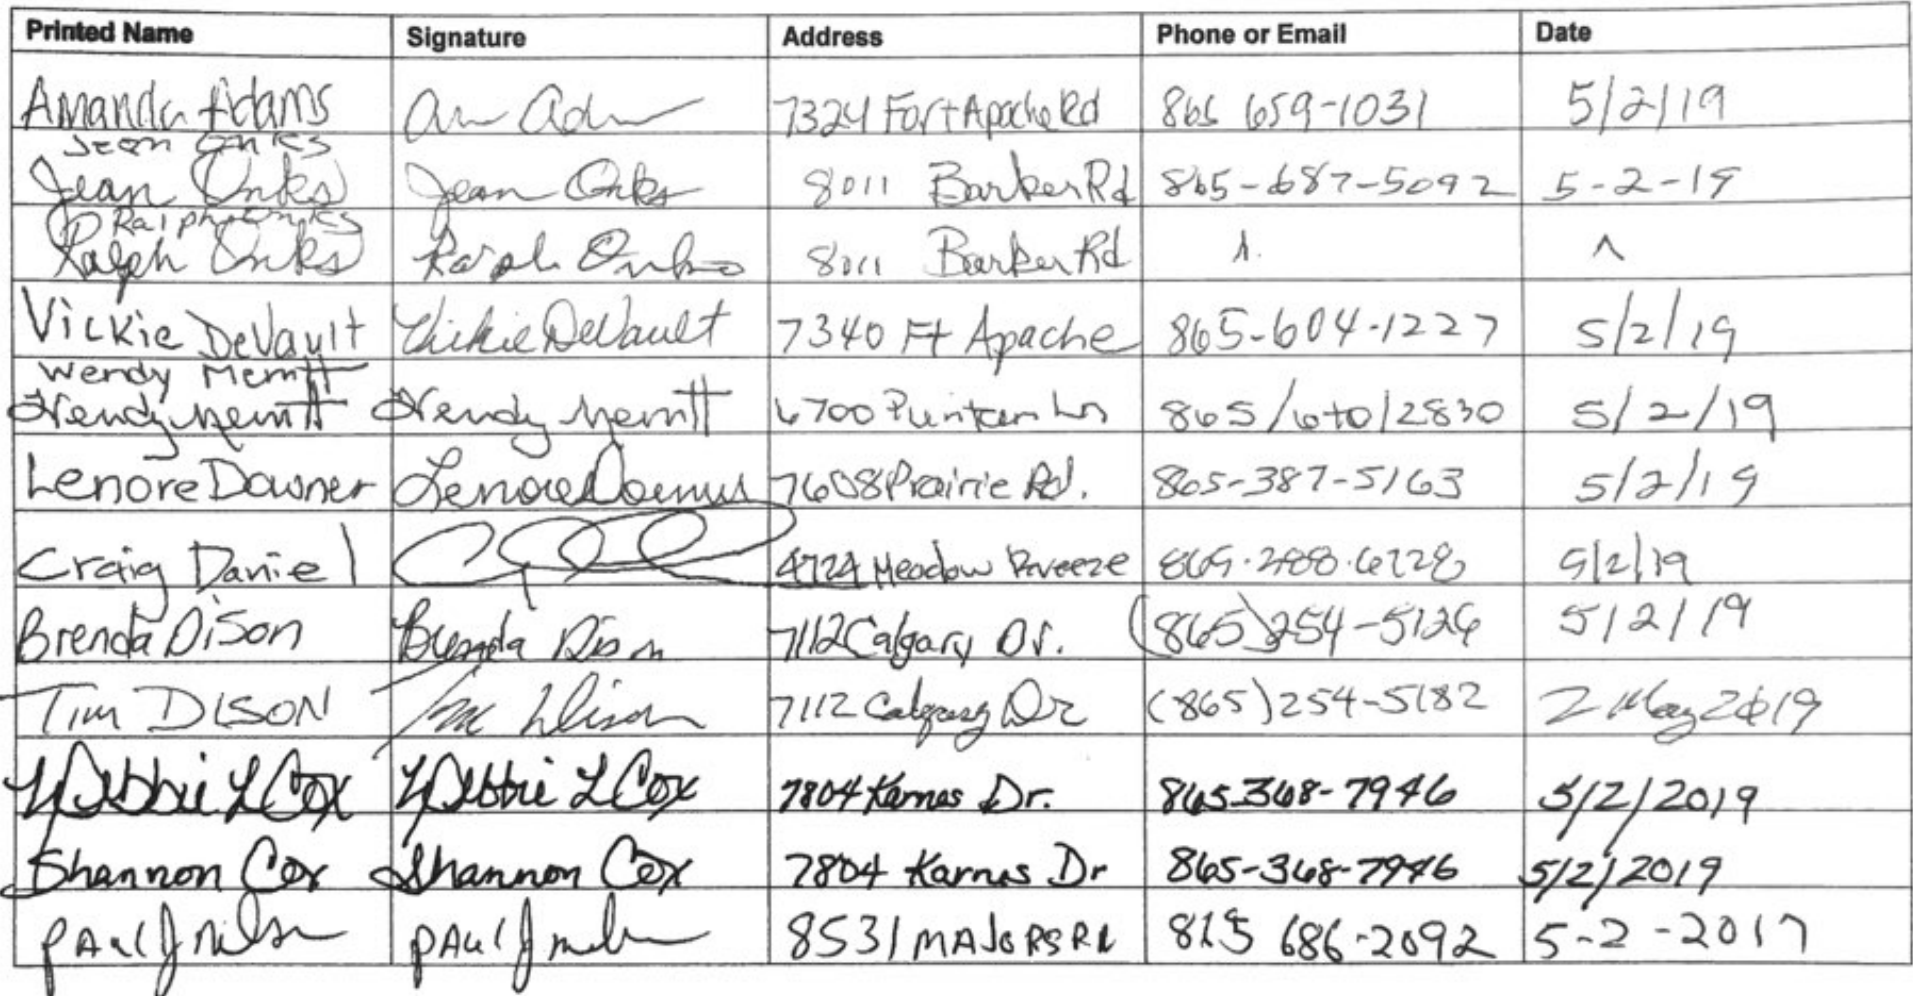 Printed Name Signature Address Phone or Email Date
Amanda Adams 7324 Fort Apache Rd 865 659-1031 5/2/19
Jean Onks
Jean Onks Jean Onks 8011 Barker Rd 865-687-5092 5-2-19
Ralph Onks
Ralph Onks Ralph Onks 8011 Barker Rd
Vickie DeVault Vickie DeVault 7340 Ft Apache 865-604-1227 5/2/19
Wendy Merritt
Wendy Merritt Wendy Merritt 6700 Puritan Ln 5/2/19
Lenore Downer Lenore Downer 7608 Prairie Rd. 865-387-5163 5/2/19
Craig Daniel 4724 Meadow Breeze 5/2/19
Brenda Dison Brenda Dison 7112 Calgary Dr. (865)254-5126 5/2/19
Tim DISON Tim Dison 7112 Calgary Dr (865)254-5182 2 May 2019
Debbie L Cox Debbie L Cox 7804 Karnes Dr. 865-368-7946 5/2/2019
Shannon Cox Shannon Cox 7804 Karnes Dr 865-368-7946 5/2/2019
PAul J PAul J 8531 MAJORS Rd 686-2092 5-2-2017